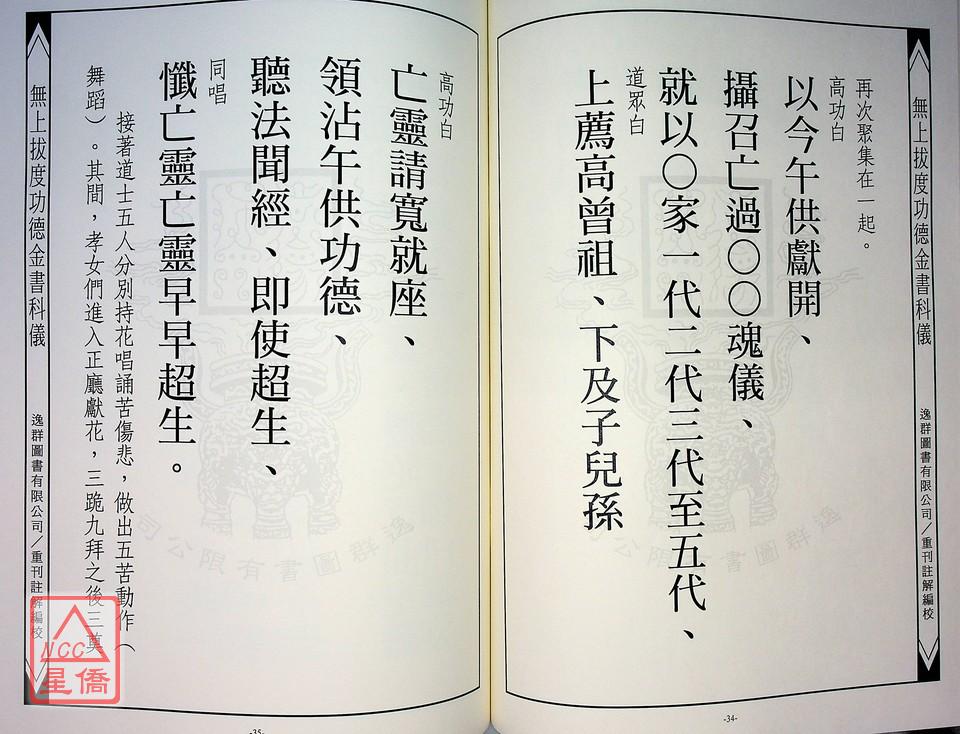 無上拔度功德金書科儀
逸群圖書有限公司／重刊註解編校
再次聚集在一起。
高功白
以今午供獻開、
攝召亡過○○魂儀、
就以○家一代二代三代至五代、
道眾白
上薦高曾祖、下及子兒孫
逸群圖書有限公司
-34-
高功白
亡靈請寬就座、
領沾午供功德、
聽法聞經、即使超生、
同唱
懺亡靈亡靈早早超生。
接著道士五人分別持花唱誦苦傷悲，做出五苦動作（
舞蹈）。其間，孝女們進入正廳獻花，三跪九拜之後三奠
逸群圖書有限公司
無上拔度功德金書科儀
逸群圖書有限公司／重刊註解編校
NCC
星僑
-35-